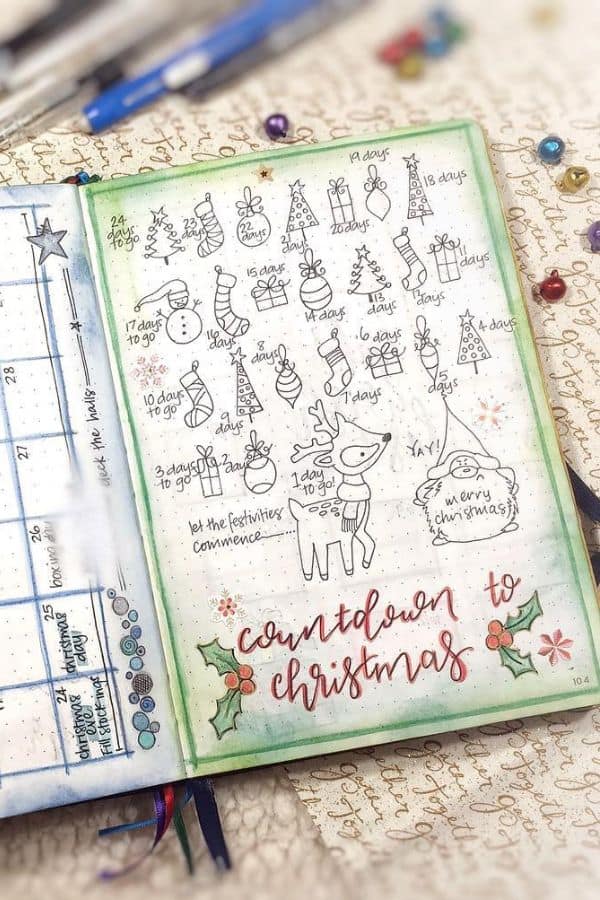 28
27
26
boxing day
25
christmas
day
24
christmas
eve
Fill stockings
deck the halls
24
days
to go
23
days
22
days
21
days
20 days
19 days
18 days
17 days
to go
16
days
15 days
14 days
13
days
12
days
11
days
10 days
to go
9
days
8
days
7 days
6 days
5
days
4 days
3 days
to go
2 days
1 day
to go!
YAY!
merry
christmas
let the festivities
commence.......
countdown to
christmas
104